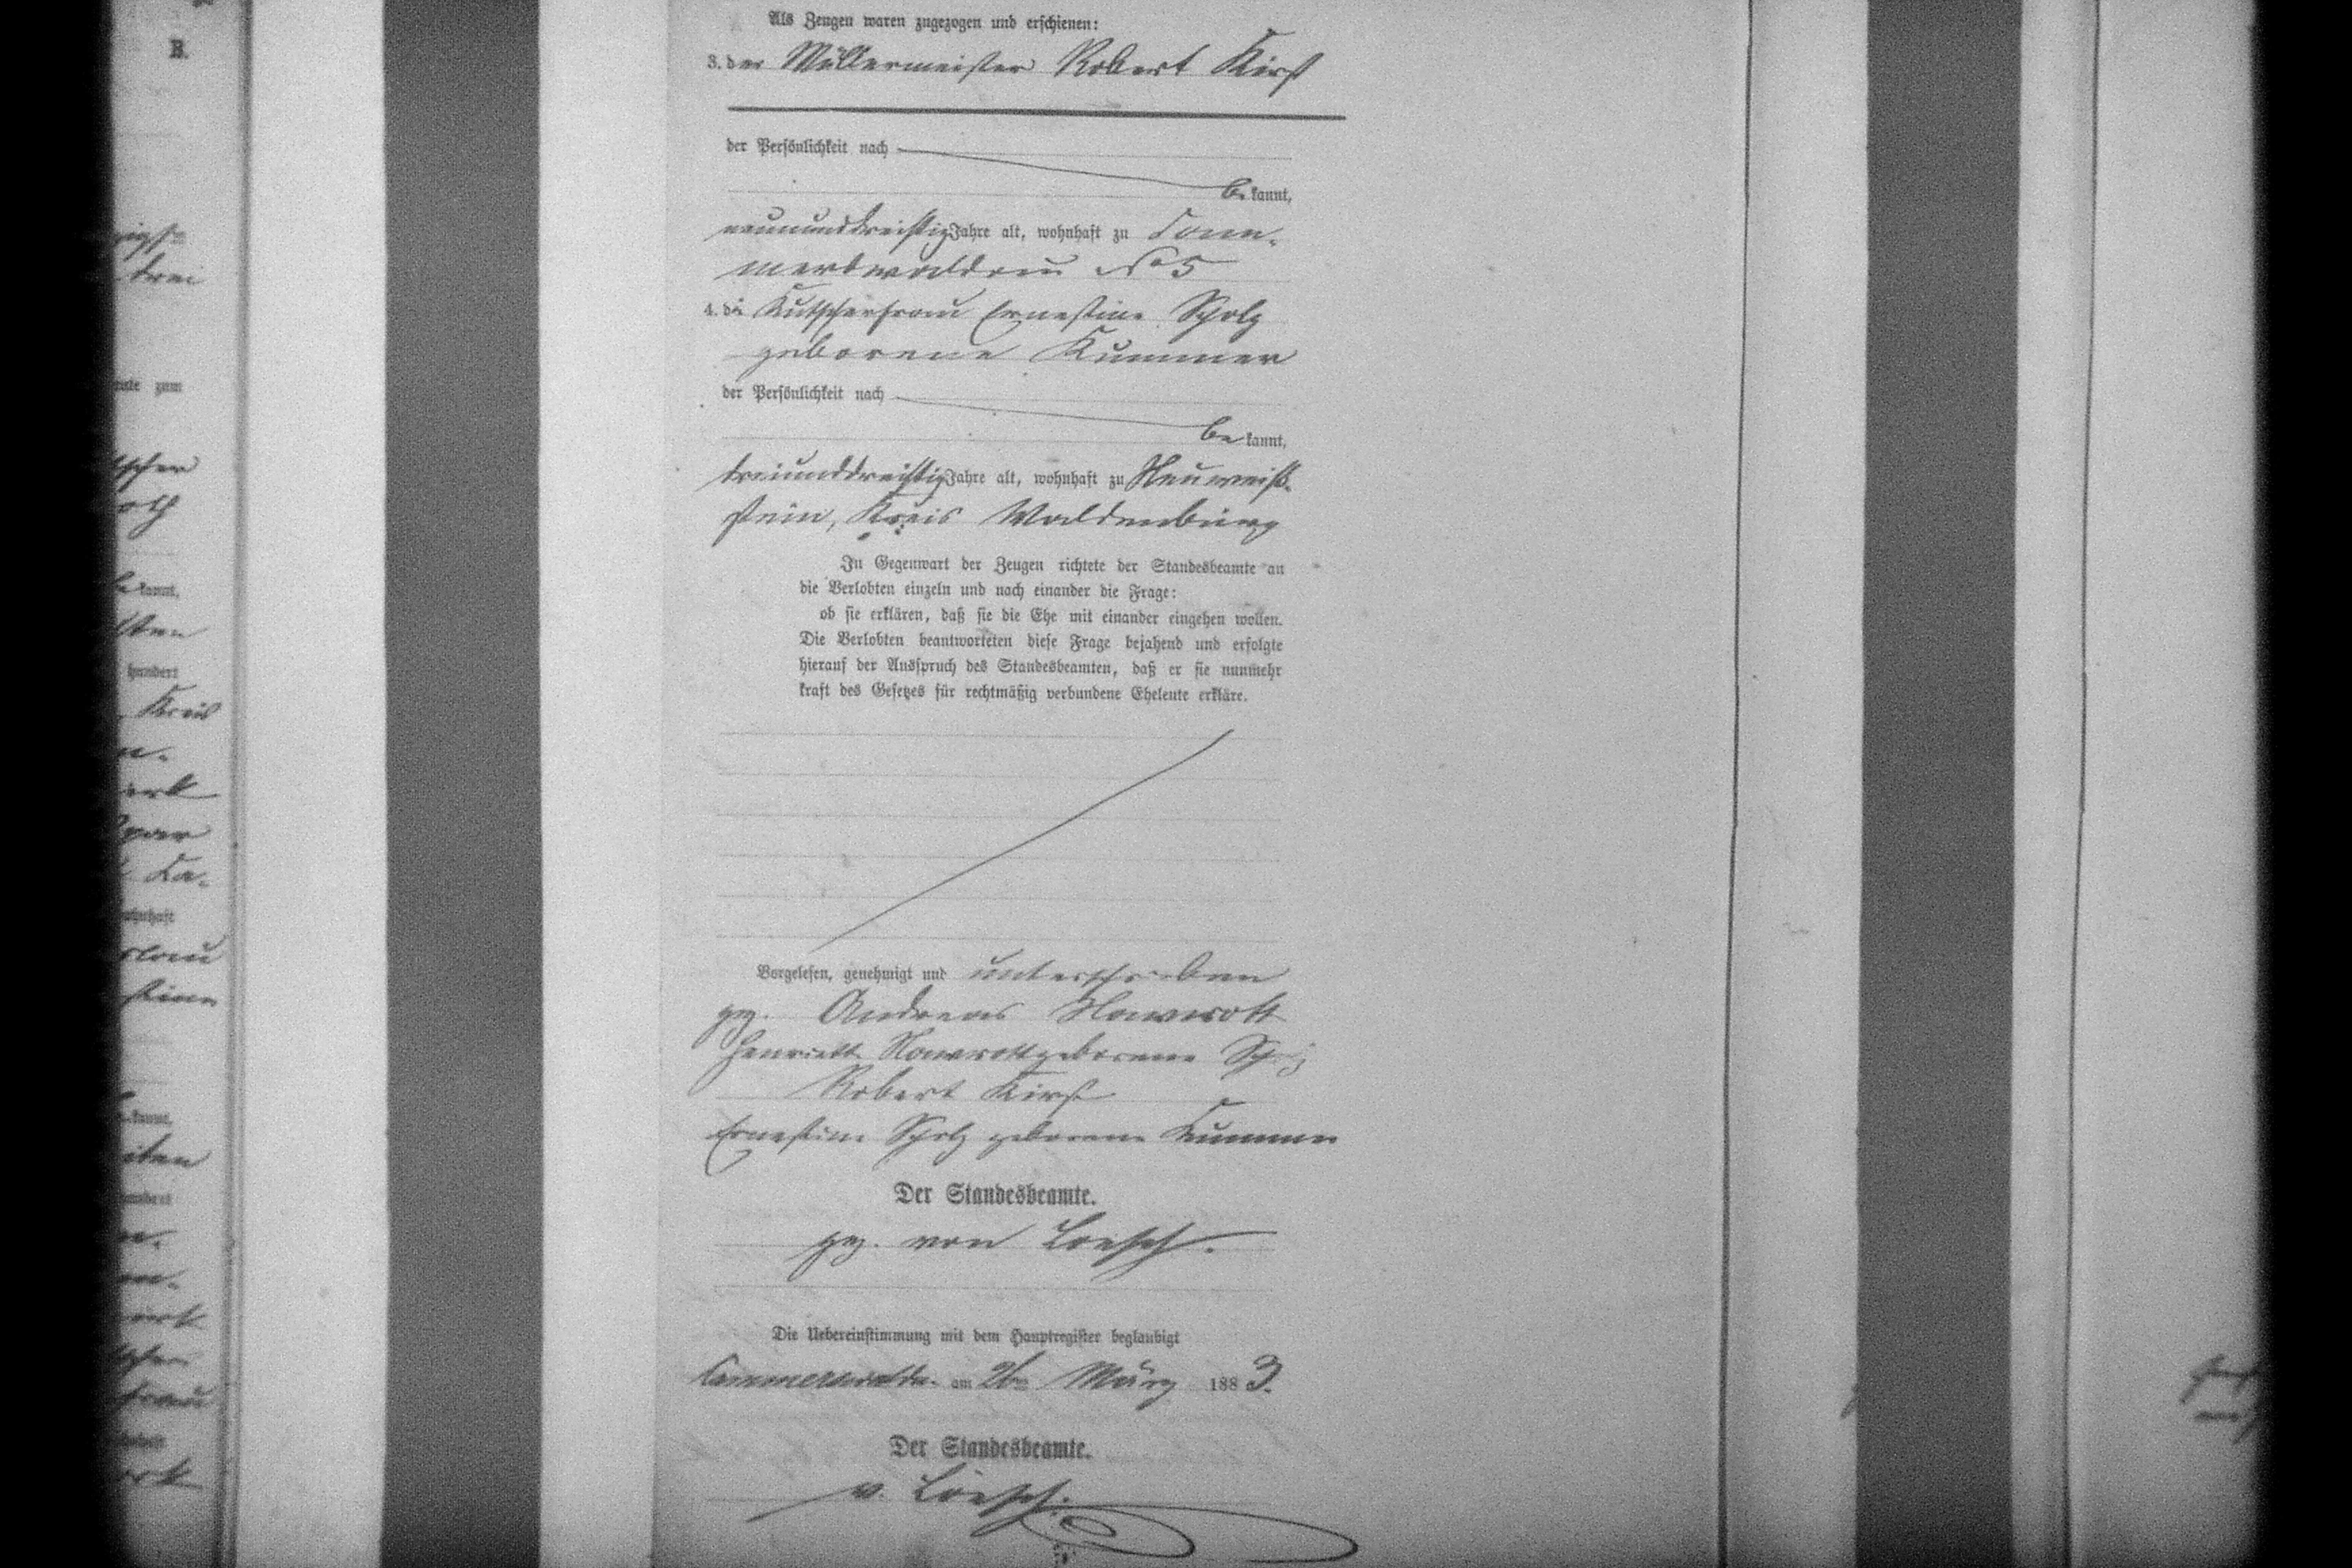 Als Zeugen waren zugezogen und erschienen:
3. der Müllermeister Robert Kirst
der Persönlichkeit nach
be kannt,
neununddreißig Jahre alt, wohnhaft zu Com-
merswaldau No 5
4. die Kutscherfrau Ernestine Scholz
geborene Kummer
der Persönlichkeit nach
be kannt,
dreiunddreißig Jahre alt, wohnhaft zu Neuweiß-
stein, Kreis Waldenburg
In Gegenwart der Zeugen richtete der Standesbeamte an
die Verlobten einzeln und nach einander die Frage:
ob sie erklären, daß sie die Ehe mit einander eingehen wollen.
Die Verlobten beantworteten diese Frage bejahend und erfolgte
hierauf der Ausspruch des Standesbeamten, daß er sie nunmehr
kraft des Gesetzes für rechtmäßig verbundene Eheleute erkläre.
Vorgelesen, genehmigt und unterschrieben
gez. Andreas Nawrott
Henriette Nawrott geborene Scholz
Robert Kirst
Ernestine Scholz geborene Kummer
Der Standesbeamte.
gez. von Loesch.
Die Uebereinstimmung mit dem Hauptregister beglaubigt
am 26ten März 1883.
Der Standesbeamte.
v. Loesch.